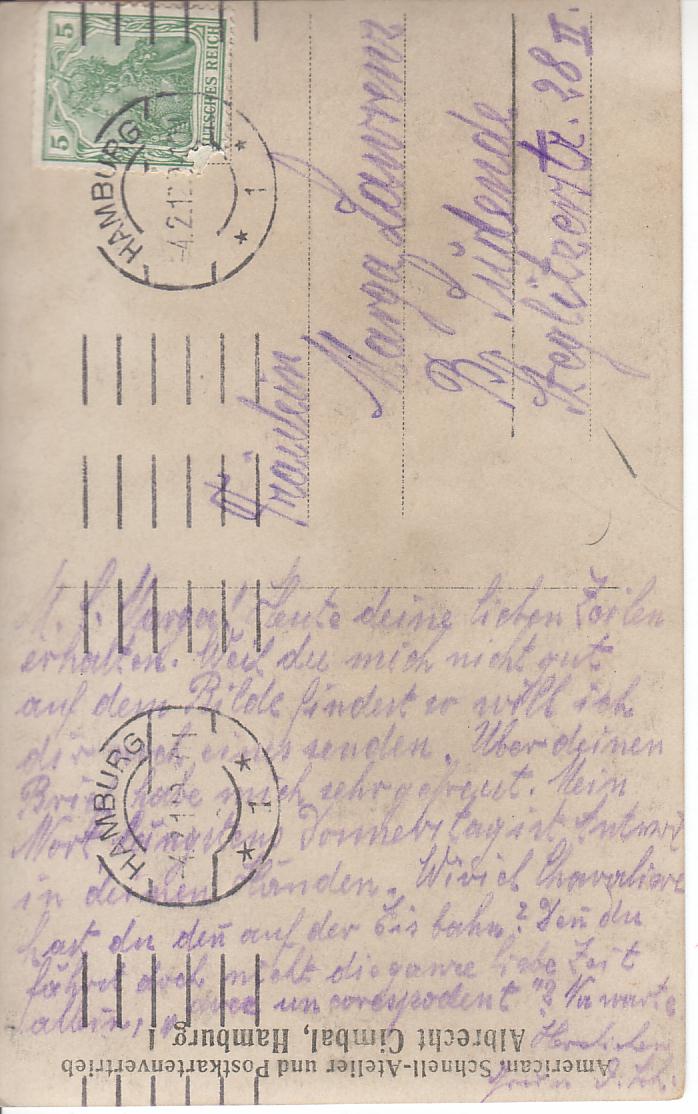 5 5
DEUTSCHES REICH
HAMBURG
4.2.12
* 1 *
Fräulein
Marga Lawrenz
Südende
Steglitzerstr. 28 II.
M. L. Marga! Heute deine lieben Zeilen
erhalten. Weil du mich nicht gut
auf dem Bilde findest so will ich
dir eines senden. Über deinen
Brief habe mich sehr gefreut. Mein
Wort längstens Donnerstag ist Antwort
in deinen Händen. Wiviel Chavaliere
hast du deñ auf der Eisbahn? Deñ du
fährst doch nicht die ganze liebe Zeit
allein, avec un corespodent"? Na warte
Herzlichen
HAMBURG
4.2.12
* 1 *
American. Schnell-Atelier und Postkartenvertrieb
Albrecht Cimbal, Hamburg 1